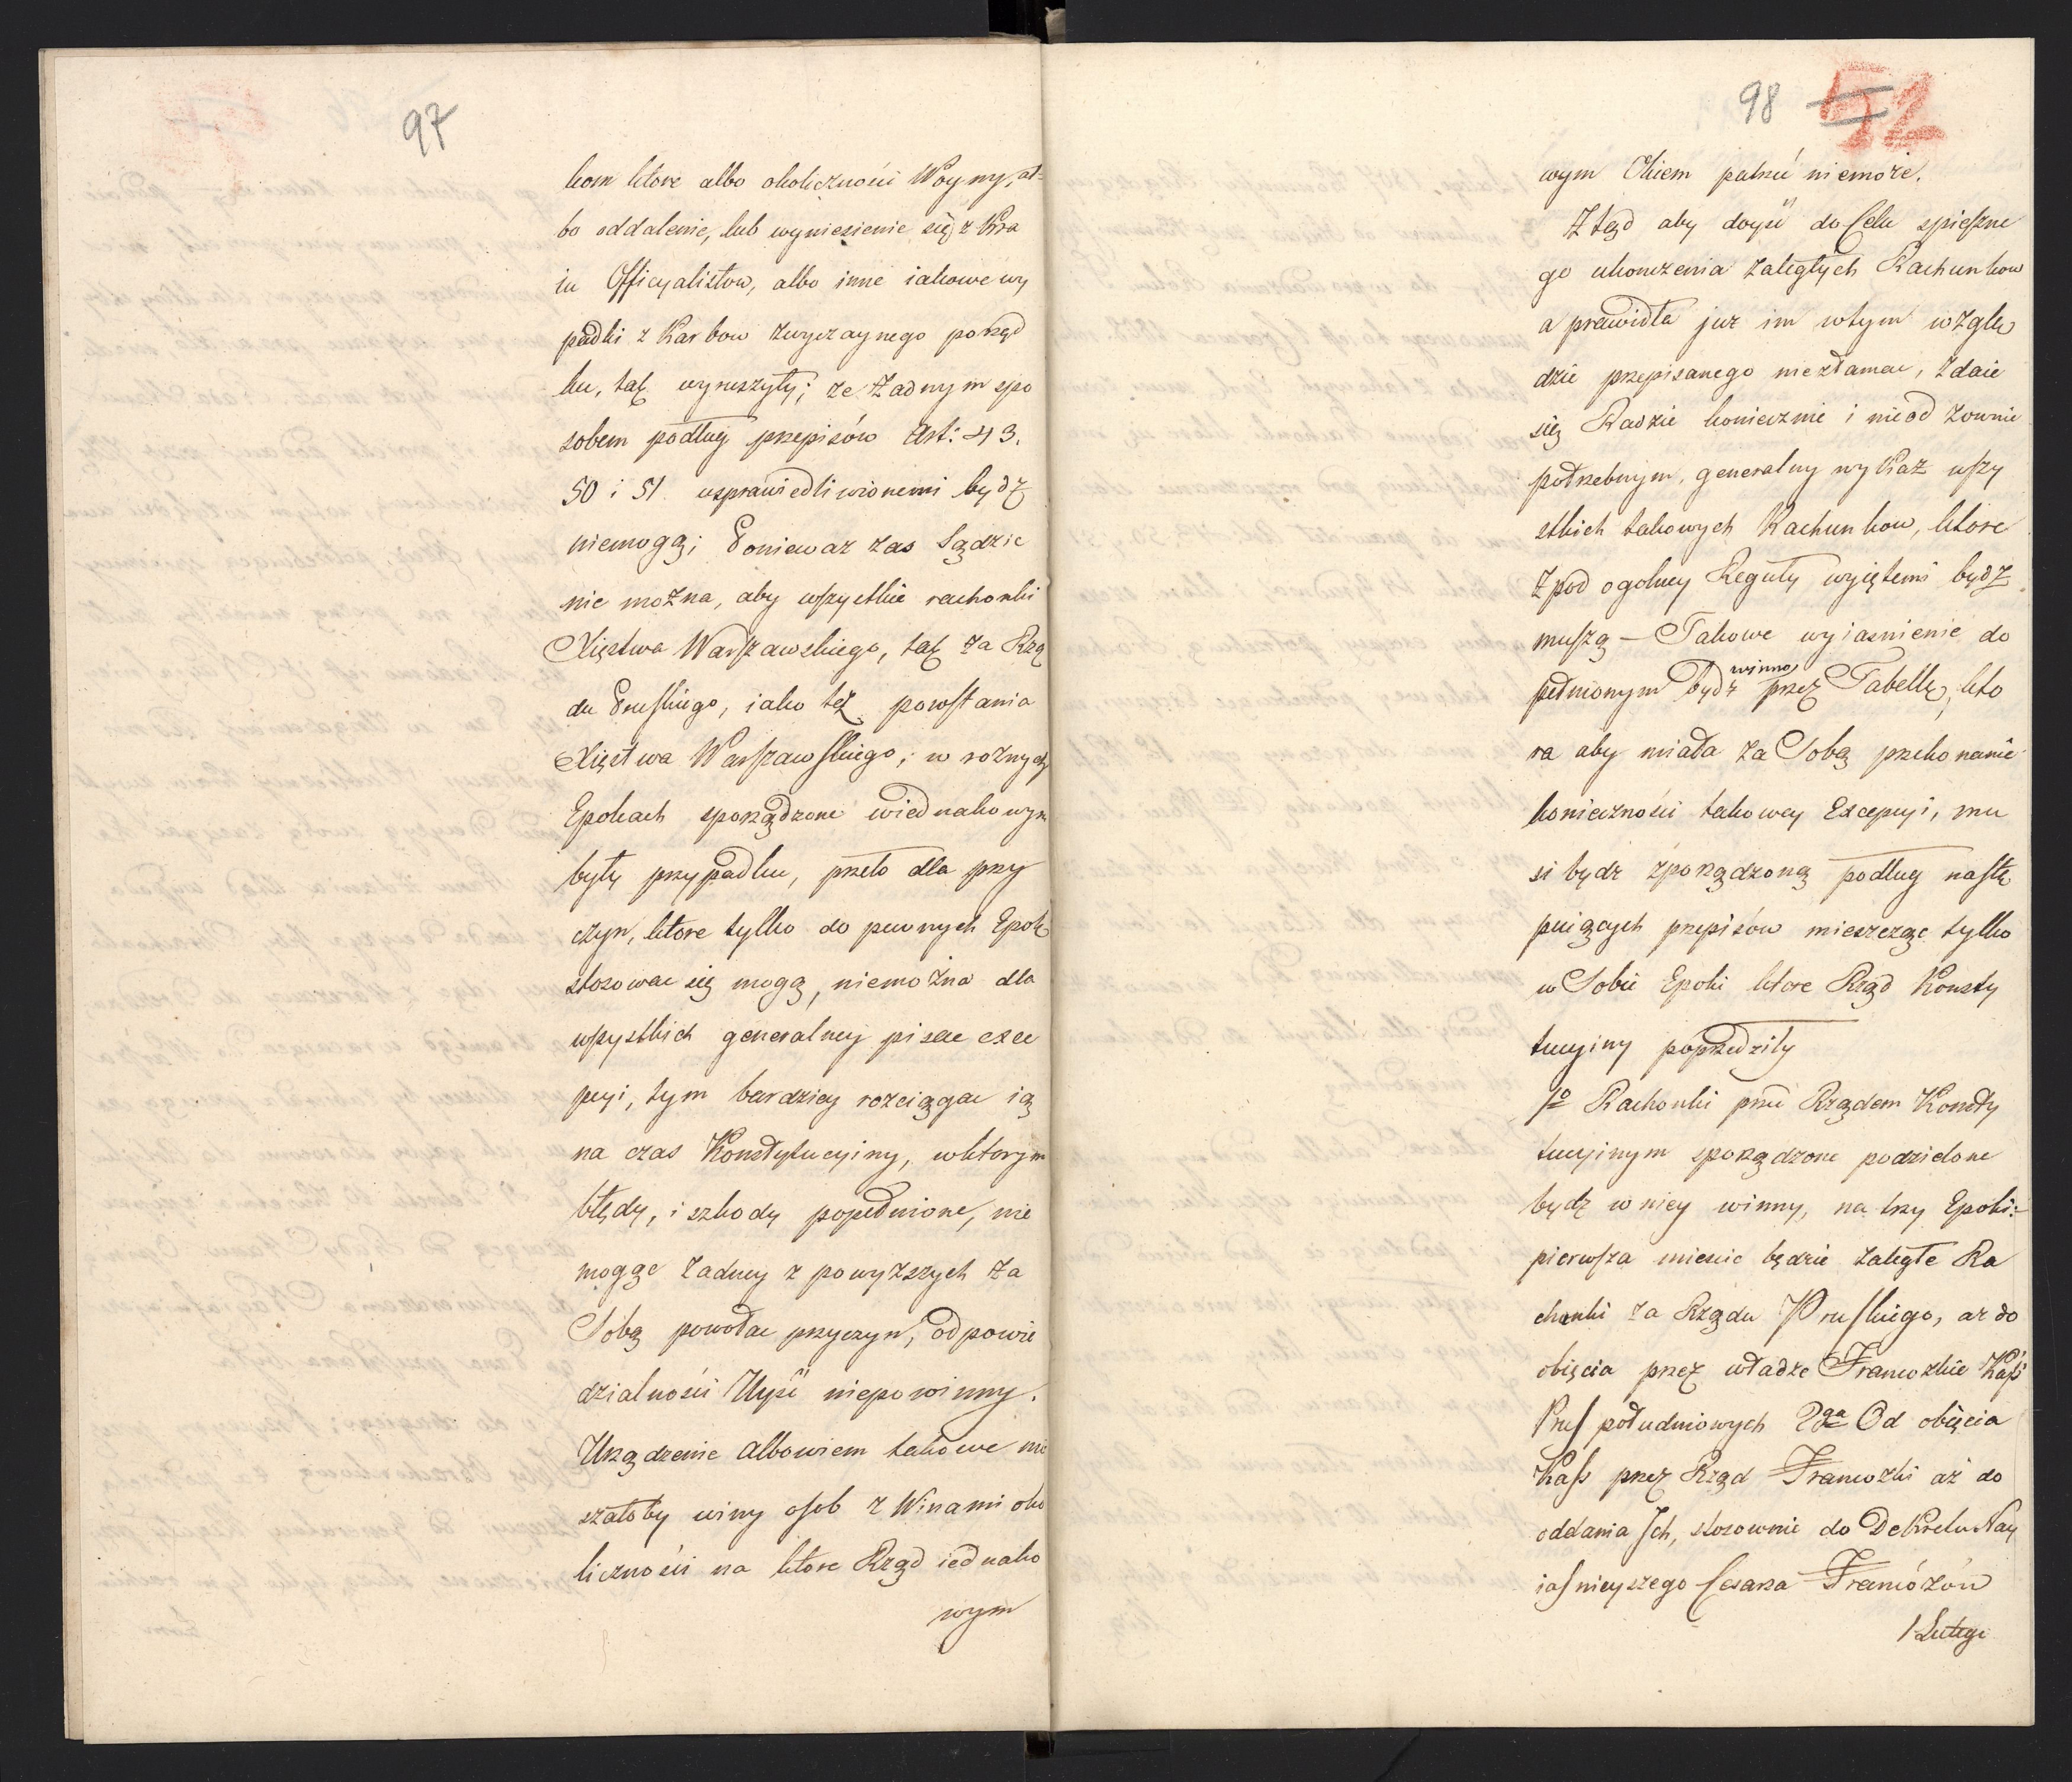 97
kom ktore albo okoliczności Woyny, al-
bo oddalenie, lub wyniesienie się z Kra
iu Officyalistow, albo inne iakowe wy
padki z Karbow zwyczaynego porząd
ku, tak wyruszyły; że żadnym spo
sobem podług przepisów Art: 43.
50 i 51 usprawiedliwionemi bydz
niemogą; Ponieważ zas Sądzic
nie można, aby wszystkie rachonki
Xięstwa Warszawskiego, tak za Rzą
du Pruskiego, iako też powstania
Xięstwa Warszawskiego; w roznych
Epokach sporządzone wiednakowym
były przypadku, przeto dla przy
czyn, ktore tylko do pewnych Epok
stosowac się mogą, niemożna dla
wszystkich generalney pisac exce
pcyi, tym bardziey rozciągac ią
na czas Konstytucyiny, wktorym
błędy, i szkody popełnione, nie
mogąc żadney z powyższych za
Sobą powołac przyczyn, odpowie
dzialności Uyść niepowinny.
Urządzenie albowiem takowe mie
szałoby winy osob z Winami oko
liczności na ktore Rząd iednako
wym
98 52
wym Okiem patrzć niemoże.
Ztąd aby doyść do Celu spieszne
go ukonczenia zaległych Rachunkow
a prawidła juz im wtym wzglę
dzie przepisanego niezłamac, zdaie
się Radzie koniecznie i nieod zownie
potrzebnym, generalny wyKaz wszy
stkich takowych Rachunkow, ktore
Zpod ogolney Reguły wyiętemi bydz
muszą - Takowe wyiasnienie do
pełnionym bydz winno przez Tabellę, kto
ra aby miała za Sobą przekonanie
konieczności takowey Excepcyi, mu
si bydz zporządzoną podług nastę
puiących przepisów mieszcząc tylko
w Sobie Epoki ktore Rząd Konsty
tucyiny poprzedziły
1o Rachonki przed Rządem Konsty
tucyinym sporządzone podzielone
bydz w niey winny, na trzy Epoki:
pierwsza miescic będzie zaległe Ra
chonki za Rządu Pruskiego, az do
obięcia przez władze Francuzkie Kass
Prus południowych 2ga Od obięcia
Kass przez Rząd Francuzki aż do
oddania Jch, stosownie do Dekretu Nay
iasnieyszego Cesarza Francózów
1 Lutego